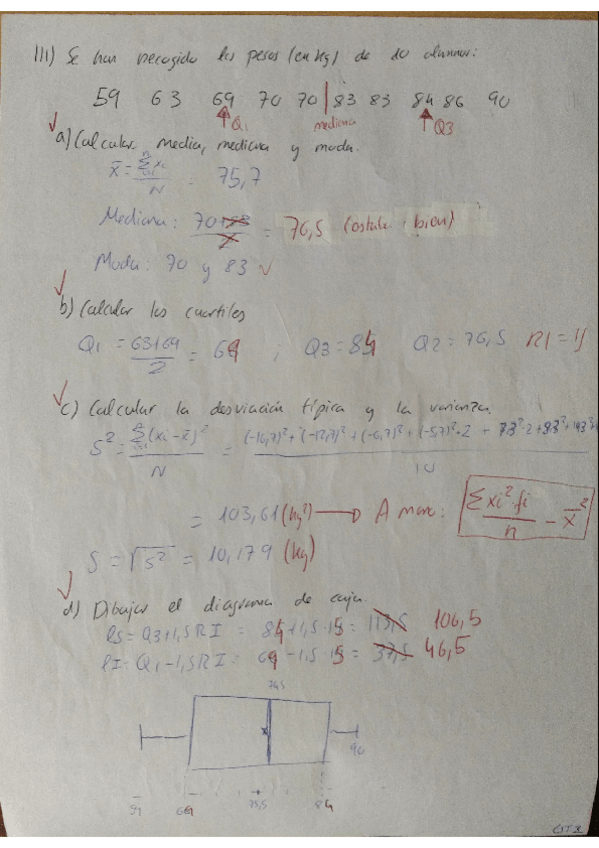 111) Se han recogido los pesos (en kg) de 10 alumnos:
59 63 69 70 70 | 83 83 84 86 90
Q1 mediana Q3
a) Calcular media, mediana y moda.
x̄ = Σxi / N = 75,7
Mediana: 70+83 / 2 = 76,5 bien)
Moda: 70 y 83
b) Calcular los cuartiles
Q1 = 63+69 / 2 = 69 , Q3 = 84 Q2 = 76,5
c) Calcular la desviación típica y la varianza.
S² = Σ(xi - x̄)² / N = (-16,7)² + (-12,7)² + (-6,7)² + (-5,7)²·2 + 7,3²·2 + 8,3² + / 10
= 103,61 (kg²) → A mano: Σxi²·fi / n - x̄²
S = √S² = 10,179 (kg)
d) Dibujar el diagrama de caja.
LS = Q3+1,5RI = 84+1,5·15 = 113,5 106,5
LI = Q1-1,5RI = 69-1,5·15 = 37,5 46,5
76,5
90
69 84